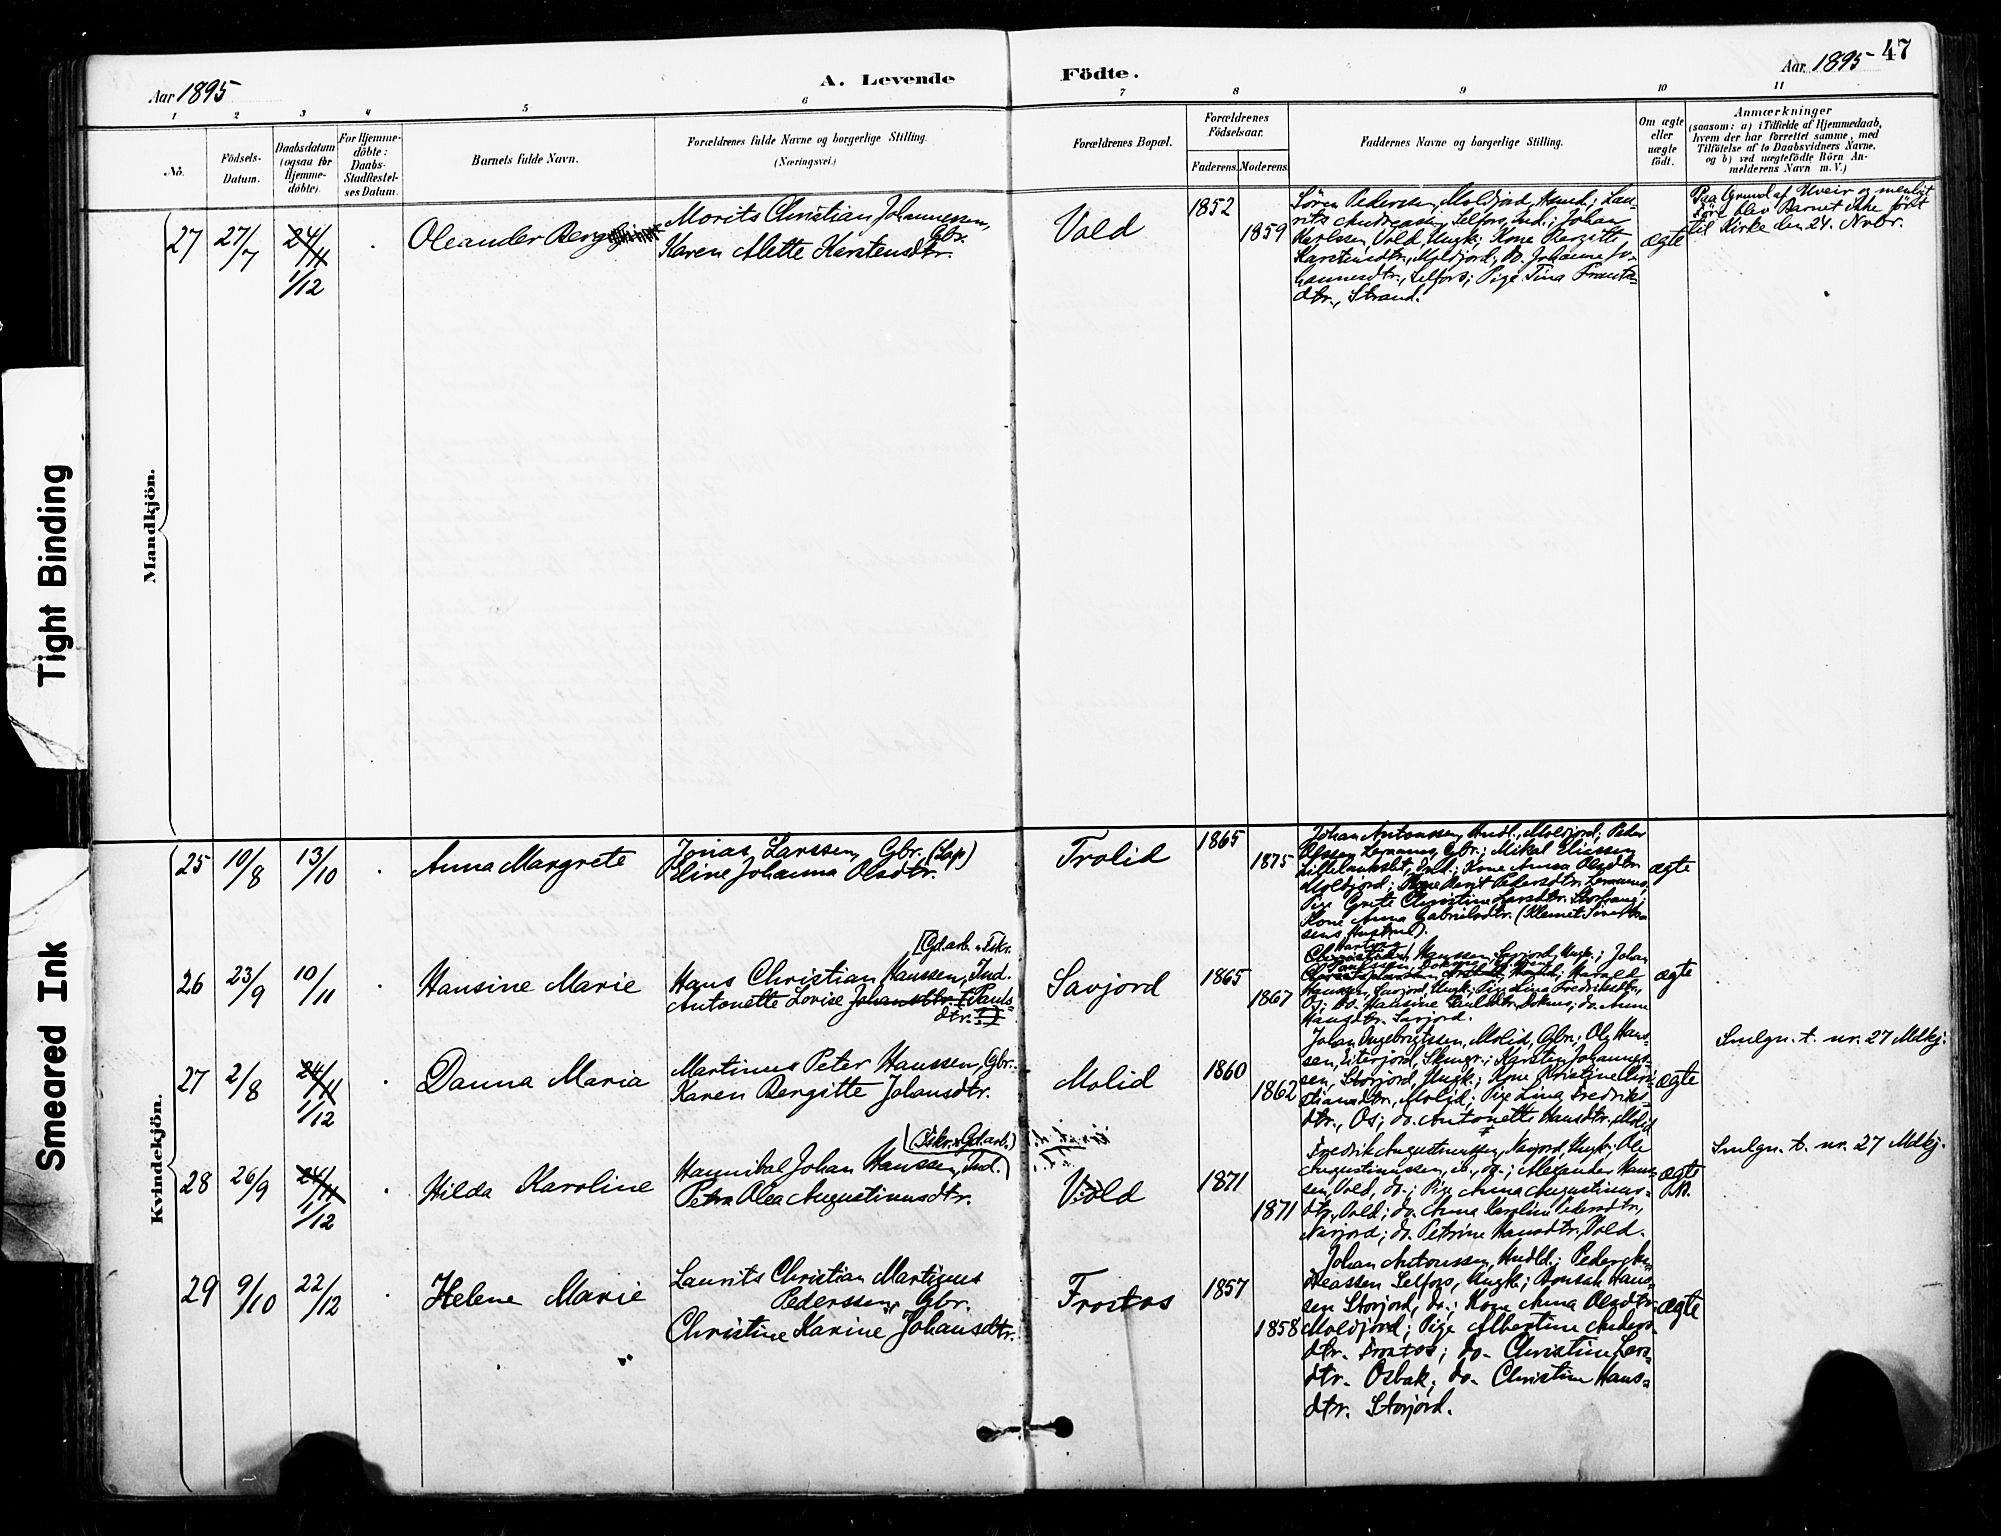 Aar 1895
A. Levende Födte.
Aar 1895
47
1 2 3 4 5 6 7 8 9 10 11
No.
Födsels-
Datum.
Daabsdatum
(ogsaa for
Hjemme-
döbte).
For Hjemme-
döbte:
Daabs-
Stadfæstel-
ses Datum.
Barnets fulde Navn.
Forældrenes fulde Navne og borgerlige Stilling.
(Næringsvei.)
Forældrenes Bopæl.
Forældrenes
Födselsaar.
Faderens. Moderens.
Faddernes Navne og borgerlige Stilling.
Om ægte
eller
uægte
födt.
Anmærkninger
(saasom: a) i Tilfælde af Hjemmedaab,
hvem der har forrettet samme, med
Tilföielse af to Daabsvidners Navne,
og b) ved uægtefödte Börn An-
melderens Navn m.V.)
Mandkjön.
27 27/7 24/11
1/12
Oleander
Morits Christian Johannessen,
Gbr.
Karen Alette Karstensdtr.
Vold
1852
1859
Sören Pedersen, Moldjord, Husm.; Lau-
rits Andreassen, Selfors, Ind.; Johan
Karlssen, Vold, Ungk.; Kone Bergitte
Karstensdtr., Moldjord; do. Johanna Jo-
hannesdtr., Selfors; Pige Tina Frants-
dtr., Strand.
ægte
Paa Grund af Uveir og menligt
Före blev Barnet ikke fört
til Kirke den 24. Nvbr.
Kvindekjön.
25 10/8 13/10
Anna Margrete
Jonas Larssen, Gbr. (Lap)
Eline Johanna Olsdtr.
Trolid
1865
1875
Johan Antonssen, Hndl., Moldjord; Peder
Olssen, Gbr.; Mikal Eliassen
Kone Anna Olsdtr.
Moldjord; Kone Berit Pedersdtr.
Pige Grete Christine Larsdtr.
Kone Anna Gabrielsdtr.
sens Hustru).
ægte
26 23/9 10/11
Hansine Marie
[Gd.arb. & Fskr.
Hans Christian Hanssen, Ind.
Antonette Lovise Johansdtr. (Pauls-
dtr.)
Savjord
1865
1867
Hanssen, Savjord, Ungk.; Johan
Harald
Hanssen, Savjord, Ungk.; Pige Lina Fredriksdtr.,
Os; do. Hansine Paulsdtr.; do. Anne
Hansdtr. Savjord.
ægte
27 2/8 24/11
1/12
Danna Maria
Martinus Peter Hanssen, Gbr.
Karen Bergitte Johansdtr.
Molid
1860
1862
Johan Ingebrigtssen, Molid, Gbr.; Ole Hans-
sen, Eiterjord, Karsten Johannes-
sen, Storjord, Ungk.; Kone Kristine Chri-
stiansdtr., Molid; Pige Lina Fredriks-
dtr., Os; do. Antonette Hansdtr., Molid
ægte
Smlgn. t. nr. 27 Mdkj.
28 26/9 24/11
1/12
Hilda Karoline
(Fskr. & Gd.arb.)
Hannibal Johan Hanssen, Ind.
Petra Olea Augustinusdtr.
Vold
1871
1871
Fredrik Augustinussen, Navjord, Ungk.; Ole
Augustinussen, do.; Alexander Hans-
sen, Vold, do.; Pige Anna Augustinus-
dtr., Vold; do. Anna Karoline
Navjord; do. Petrine Hansdtr., Vold.
ægte
Smlgn. t. nr. 27 Mdkj.
29 9/10 22/12
Helene Marie
Laurits Christian Martinus
Pederssen, Gbr.
Christine Karine Johansdtr.
Frostos
1857
1858
Johan Antonssen, Hndl.; Peder An-
dreassen Selfors, Ungk.; Hans-
sen Storjord, do.; Kone Anna Olsdtr.
Moldjord; Pige Albertine Anders-
dtr. Frostos; do. Christine Lars-
dtr. Osbak; do. Christine Hans-
dtr. Storjord.
ægte
Tight Binding
Smeared Ink